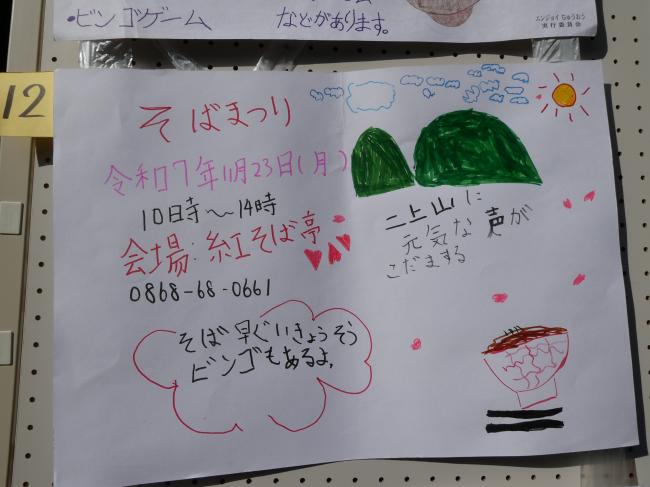 ・ビンゴゲーム
などがあります。
エンジョイちゅうおう
実行委員会
12
そばまつり
令和7年11月23日(月)
10時～14時
会場:紅そば亭
0868-68-0661
二上山に
元気な声が
こだまする
そば早ぐいきょうそう
ビンゴもあるよ。